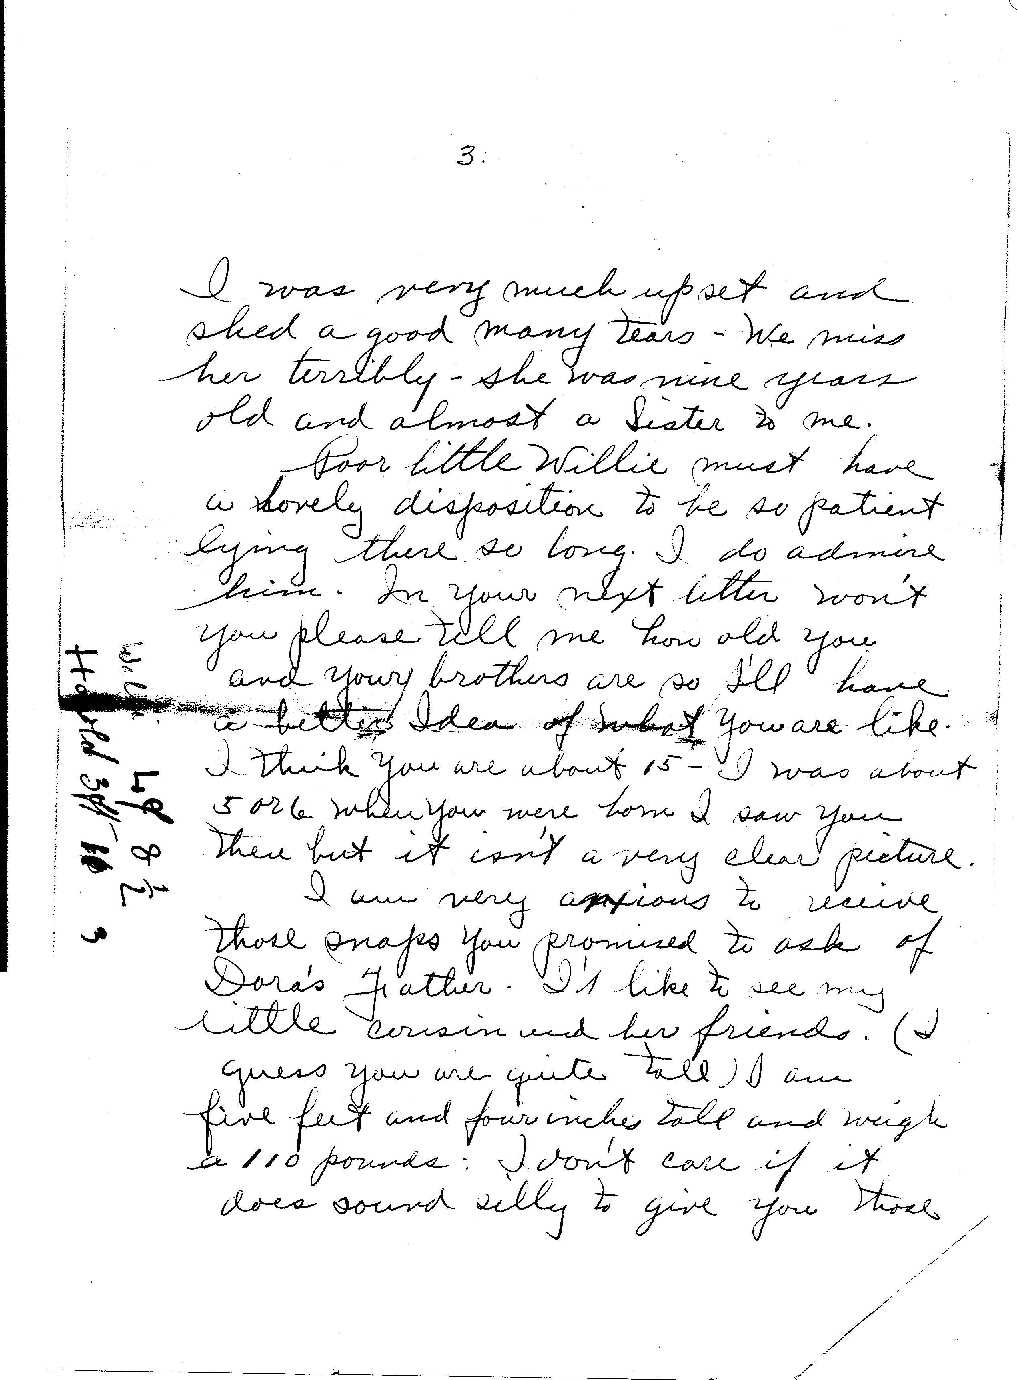 3.
I was very much upset and
shed a good many tears - We miss
her terribly - she was nine years
old and almost a Sister to me.
Poor little Willie must have
a lovely disposition to be so patient
lying there so long. I do admire
him. In your next letter won't
you please tell me how old you
and your brothers are so I'll have
a better Idea of what you are like.
I think you are about 15 - I was about
5 or 6 when you were born I saw you
then but it isn't a very clear picture.
I am very anxious to receive
those snaps you promised to ask of
Dora's Father. I'd like to see my
little cousin and her friends. (I
guess you are quite tall) I am
five feet and four inches tall and weigh
a 110 pounds: I don't care if it
does sound silly to give you those
Harold
8 1/2
3